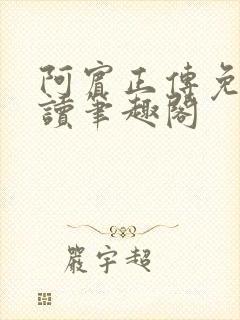 阿賓正傳免
讀筆趣閣
嚴宇超